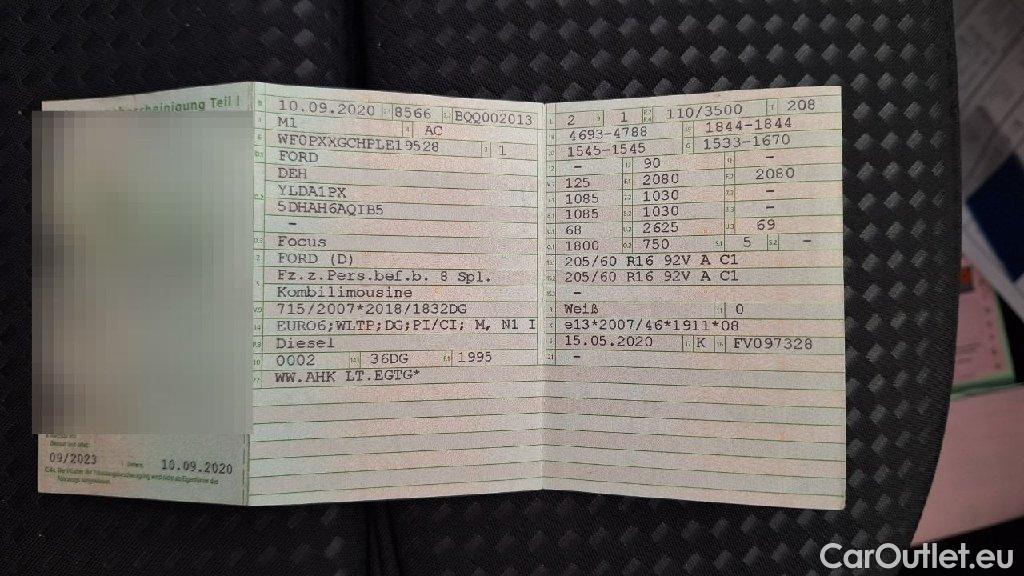 Teil I
10.09.2020 8566 BQQ002013
M1 AC
WF0PXXGCHPLE19528 1
FORD
DEH
YLDA1PX
5DHAH6AQIB5
–
Focus
FORD (D)
Fz.z.Pers.bef.b. 8 Spl.
Kombilimousine
715/2007*2018/1832DG
EURO6;WLTP;DG;PI/CI; M, N1 I
Diesel
0002 36DG 1995
WW.AHK LT.EGTG*
09/2023 10.09.2020
2 1 110/3500 208
4693-4788 1844-1844
1545-1545 1533-1670
– 90 –
125 2080 2080
1085 1030 –
1085 1030 –
68 2625 69
1800 750 5 –
205/60 R16 92V A C1
205/60 R16 92V A C1
–
Weiß 0
e13*2007/46*1911*08
15.05.2020 K FV097328
–
CarOutlet.eu